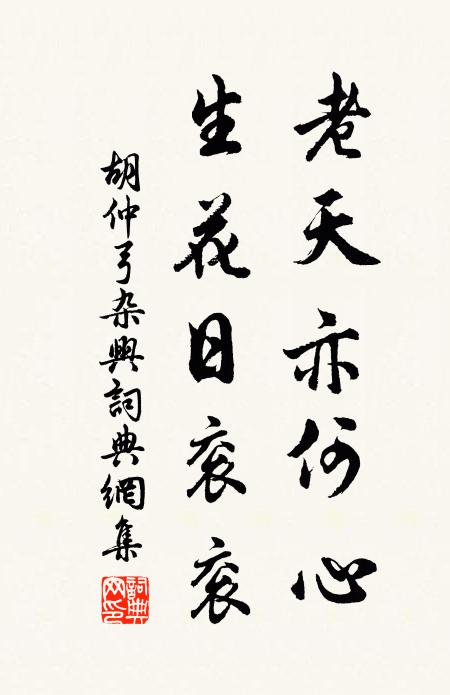 老天亦何心
生花日衮衮
胡仲弓杂興詞典網集
詞典网印